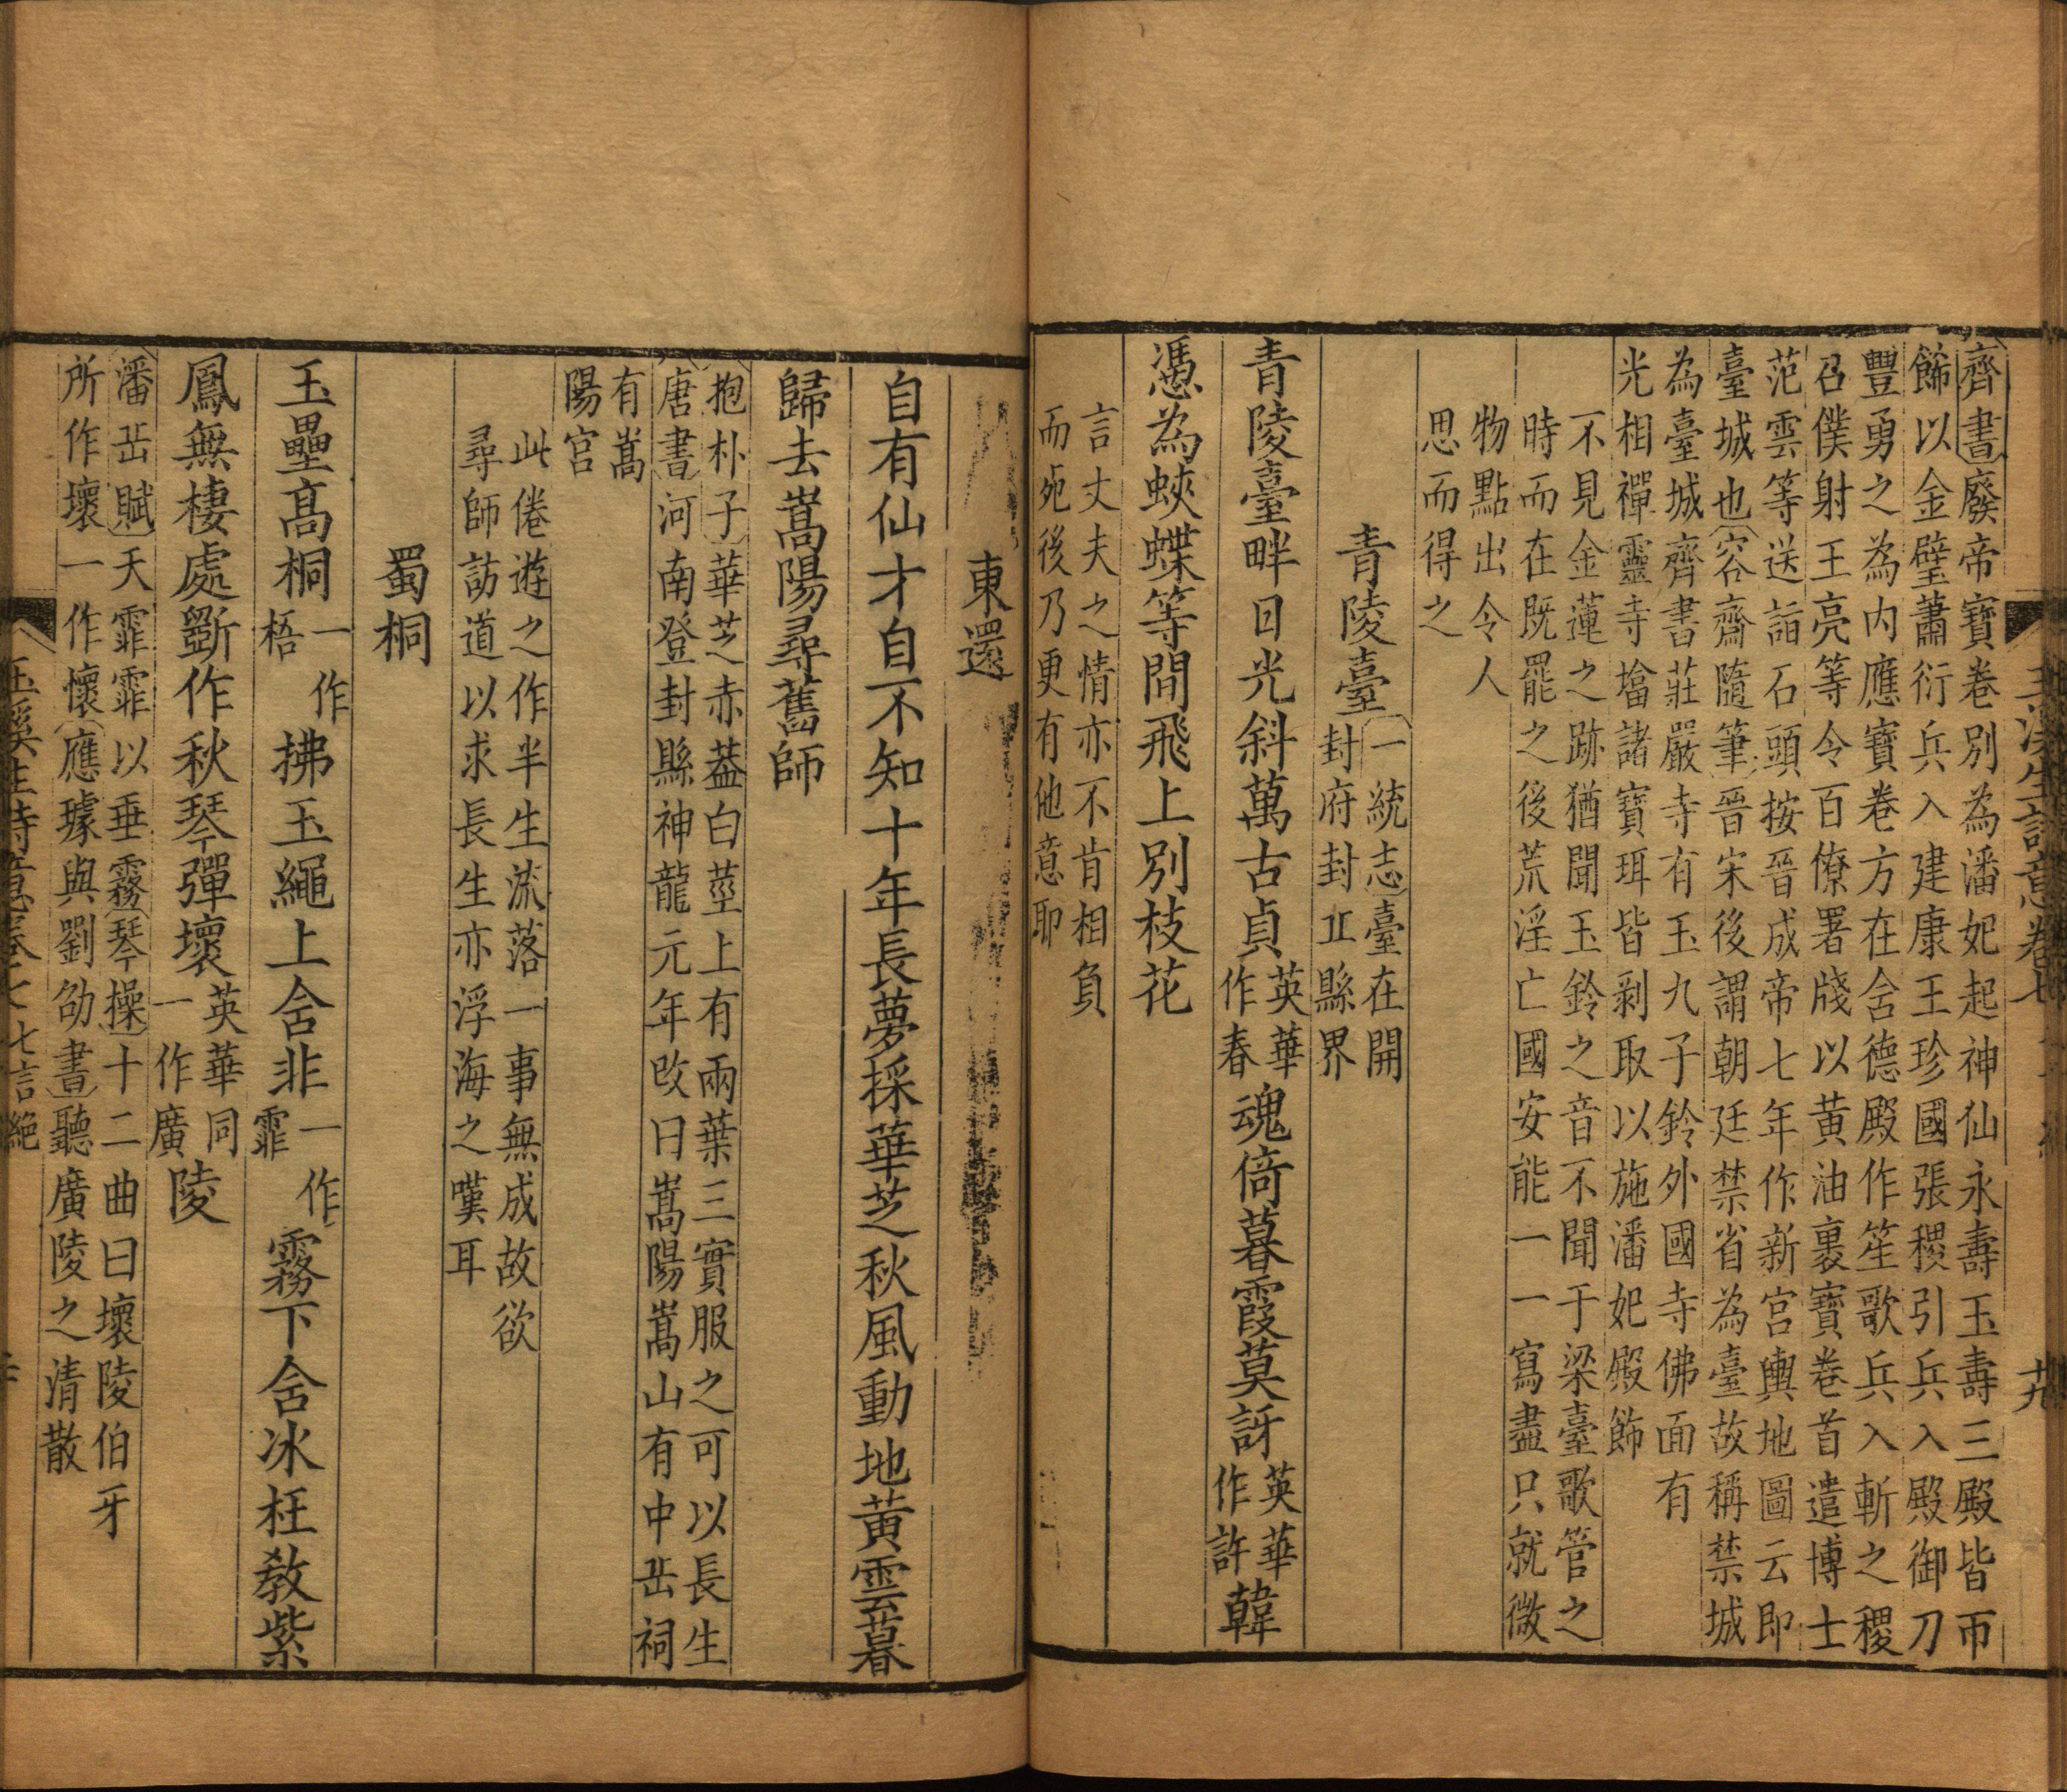 玉溪生詩意卷七
十九
齊書廢帝寶卷別為潘妃起神仙永壽玉壽三殿皆帀
餙以金璧蕭衍兵入建康王珍國張稷引兵入殿御刀
豐勇之為內應寶卷方在含德殿作笙歌兵入斬之稷
召僕射王亮等令百僚署牋以黃油裹寶卷首遣博士
范雲等送詣石頭按晉成帝七年作新宮輿地圖云即
臺城也容齋隨筆晉宋後謂朝廷禁省為臺故稱禁城
為臺城齊書莊嚴寺有玉九子鈴外國寺佛面有
光相禪靈寺㙮諸寶珥皆剥取以施潘妃殿飾
不見金蓮之跡猶聞玉鈴之音不聞于梁臺歌管之
時而在既罷之後荒淫亡國安能一一寫盡只就微
物點出令人
思而得之
青陵臺
一統志臺在開
封府封丘縣界
青陵臺畔日光斜萬古貞
英華
作春
魂倚暮霞莫訝
英華
作許
韓
憑為蛺蝶等閒飛上別枝花
言丈夫之情亦不肯相負
而死後乃更有他意耶
東還
自有仙才自不知十年長夢採華芝秋風動地黃雲暮
歸去嵩陽尋舊師
抱朴子華芝赤葢白莖上有兩葉三實服之可以長生
唐書河南登封縣神龍元年改曰嵩陽嵩山有中岳祠
有嵩
陽宮
此倦遊之作半生流落一事無成故欲
尋師訪道以求長生亦浮海之嘆耳
蜀桐
玉壘高桐
一作
梧
拂玉繩上含非
一作
霏
霧下含冰枉敎紫
鳳無棲處斵作秋琴彈壞
英華同
一作廣
陵
潘岳賦天霏霏以垂霧琴操十二曲曰壞陵伯牙
所作壞一作懷應璩與劉劭書聽廣陵之清散
玉溪生詩意卷七 七言絕